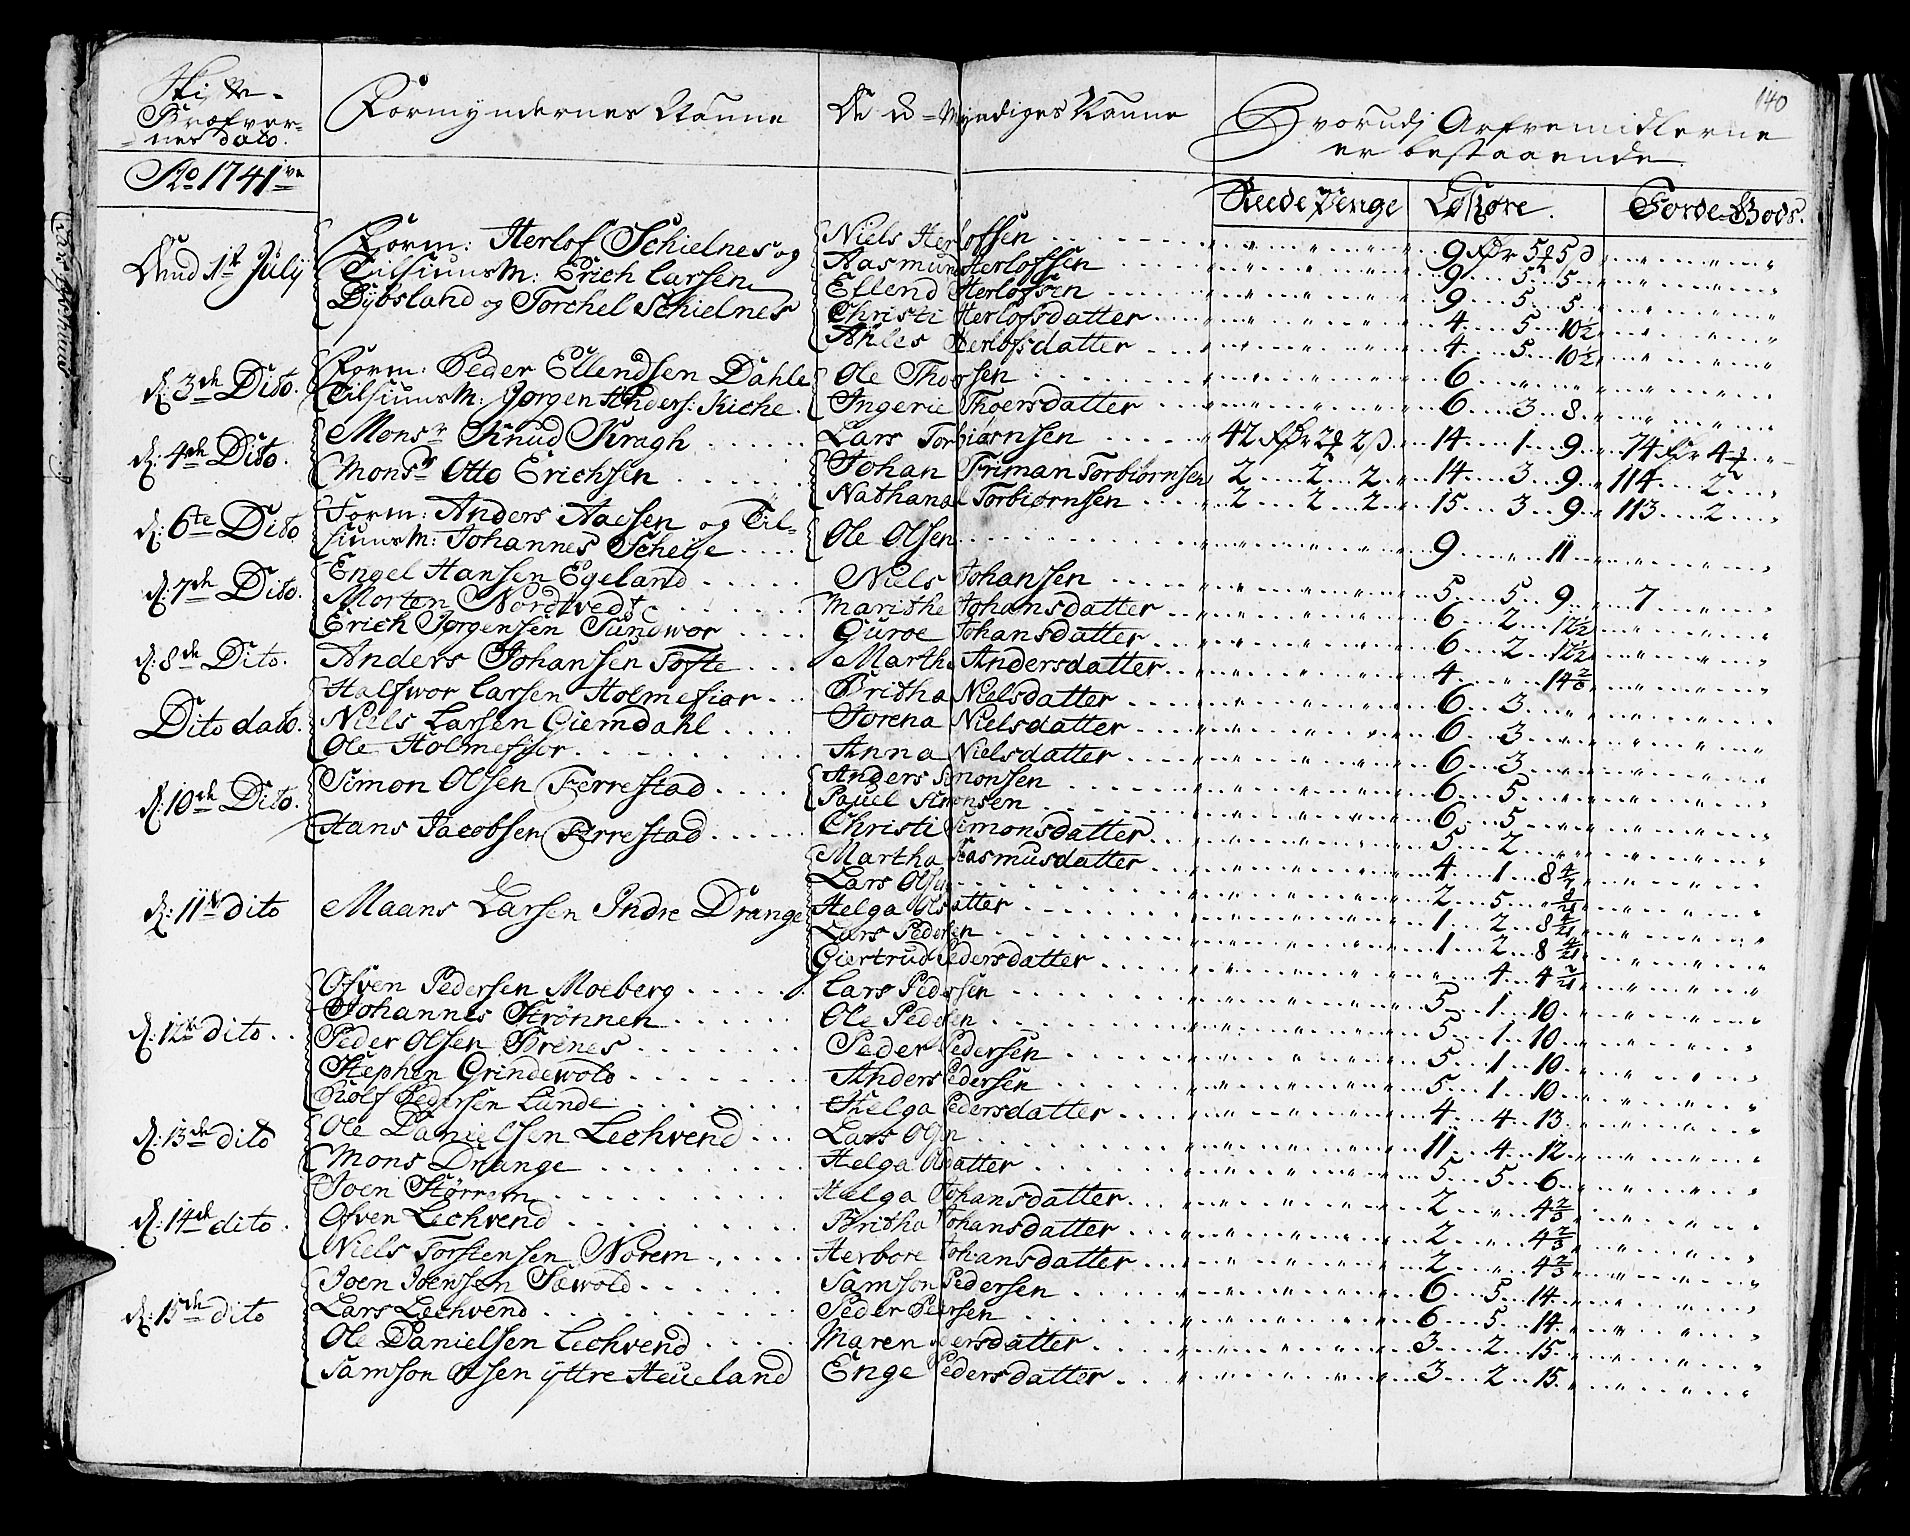 140
Skifte-
Brefver-
nes dato.
Formyndernes Naune
De U-Myndiges Naune
Hvorudj Arfvemidlerne
er bestaaende.
Ao 1741ve
Reede Penge Løsøre. Jorde-Gods.
Dend 1st Julÿ
Form: Herlof Schielnes og
Tilsiunsm: Erich Larsen
Dybsland og Torchel Schielnes
Niels Herlofsen 9 Rdr 5 5
Aasmund Herlofsen 9 5 5
Ellend Herlofsen 9 5 5
Christi Herlofsdatter 4 5 10½
Ahles Herlofsdatter 4 5 10½
d: 3de Dito.
Form: Peder Ellendsen Dahle
Tilsiunsm: Jørgen Anders: Kiche
Ole Thorsen 6 " "
Ingerie Thoersdatter 6 3 8
d: 4de Dito.
Monsr Knud Kragh
Monsr Otto Erichsen
Lars Torbiørnsen 42 Rdr 2 2 14 1 9 74 Rdr 4½
Johan Friman Torbiørnsen 2 2 2 14 3 9 114 2
Nathanael Torbiørnsen 2 2 2 15 3 9 113 2
d: 6te Dito
Form: Anders Aaesen og Til-
siunsm: Johannes Scheije
Ole Olsen 9 " 11
d: 7de Dito.
Engel Hansen Egeland
Morten Nordtvedt
Erich Jørgensen Sundwor
Niels Johansen 5 5 9 7
Marithe Johansdatter 6 2 12½
Guroe Johansdatter 6 2 12½
d: 8de Dito.
Anders Johansen Tofte
Martha Andersdatter 4 " 14⅔
Dito dato.
Halfwor Larsen Holmefior
Niels Larsen Giemdahl
Ole Holmefior
Britha Nielsdatter 6 3 "
Sorena Nielsdatter 6 3 "
Anna Nielsdatter 6 3 "
d: 10de Dito.
Simon Olsen Ferrestad
Hans Jacobsen Ferrestad
Anders Simonsen 6 5 "
Pauel Simonsen 6 5 "
Christi Simonsdatter 5 2 "
d: 11te dito
Maans Larsen Indre Drange
Martha Rasmusdatter 4 1 8 4/7
Lars Olsen 2 5 " 8/21
Helga Olsdatter 1 2 8 4/21
Lars Pedersen 1 2 8 4/21
Giertrud Pedersdatter " 4 4 2/21
d: 12te dito.
Ofven Pedersen Moeberg
Johannes Strønnen
Peder Olsen Brenes
Stephen Grindewold
Rolf Pedersen Lunde
Lars Pedersen 5 1 10
Ole Pedersen 5 1 10
Peder Pedersen 5 1 10
Anders Pedersen 5 1 10
Helga Pedersdatter 4 4 13
d: 13de dito
Ole Danielsen Lechvend
Mons Drange
Lars Olsen 11 4 12
Helga Olsdatter 5 5 6
d: 14de dito.
Joen Størrem
Ofven Lechvend
Niels Torstensen Norem
Helga Johansdatter 2 " 4⅔
Britha Johansdatter 2 " 4⅔
Herbore Johansdatter 2 " 4⅔
d: 15de dito
Joen Joensen Sæwold
Lars Lechvend
Ole Danielsen Lechvend
Samson Olsen ÿttre Heueland
Samson Pedersen 6 5 14
Peder Pedersen 6 5 14
Maren Pedersdatter 3 2 15
Enge Pedersdatter 3 2 15